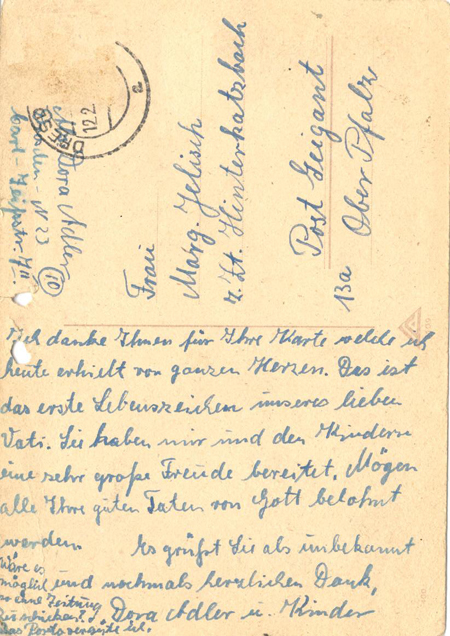 DRESD
12.2
a
Dora Adler
(10)
Dresden-N 23
Frau
Marg. Jelisch
z. Zt. Hinterkatzbach
Post Geigant
13a Ober Pfalz
Ich danke Ihnen für Ihre Karte welche ich
heute erhielt von ganzen Herzen. Das ist
das erste Lebenszeichen unseres lieben
Vati. Sie haben mir und den Kindern
eine sehr große Freude bereitet. Mögen
alle Ihre guten Taten von Gott belohnt
werden.
Es grüßt Sie als unbekannt
und nochmals herzlichen Dank,
Dora Adler u. Kinder
Wäre es
möglich
eine Zeitung
zu schicken?
das Porto vergüte ich.